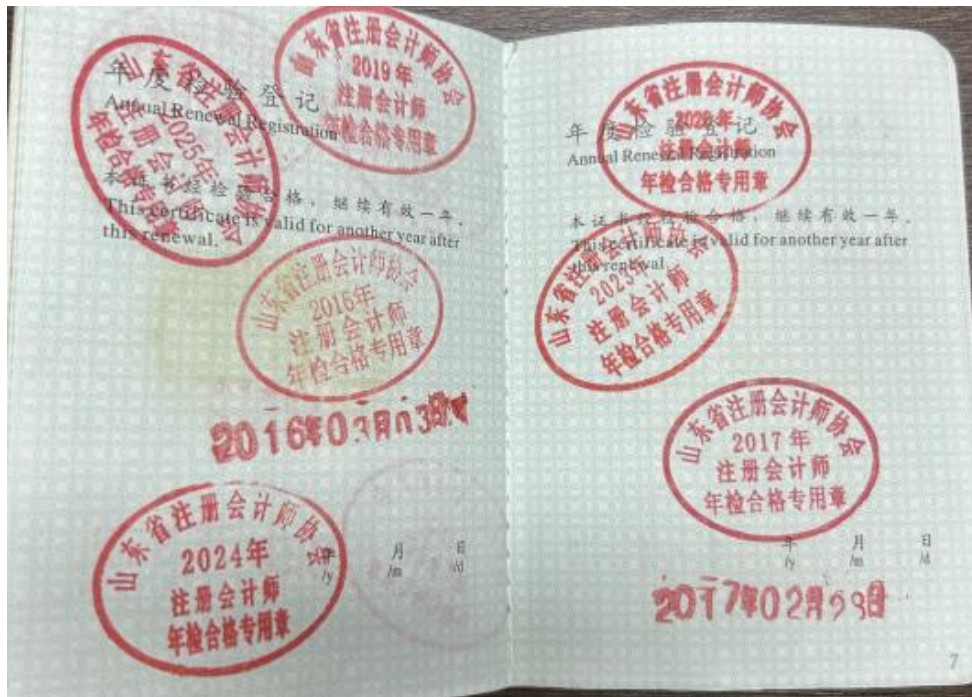 年度检验登记
Annual Renewal Registration
本证书经检验合格，继续有效一年。
This certificate is valid for another year after
this renewal.
山东省注册会计师协会
2019年
注册会计师
年检合格专用章
山东省注册会计师协会
2025年
注册会计师
年检合格专用章
山东省注册会计师协会
2016年
注册会计师
年检合格专用章
2016年03月03日
山东省注册会计师协会
2024年
注册会计师
年检合格专用章
年 月 日
/y /m /d
年度检验登记
Annual Renewal Registration
本证书经检验合格，继续有效一年。
This certificate is valid for another year after
this renewal.
山东省注册会计师协会
注册会计师
年检合格专用章
山东省注册会计师协会
2023年
注册会计师
年检合格专用章
山东省注册会计师协会
2017年
注册会计师
年检合格专用章
年 月 日
/y /m /d
2017年02月 日
7